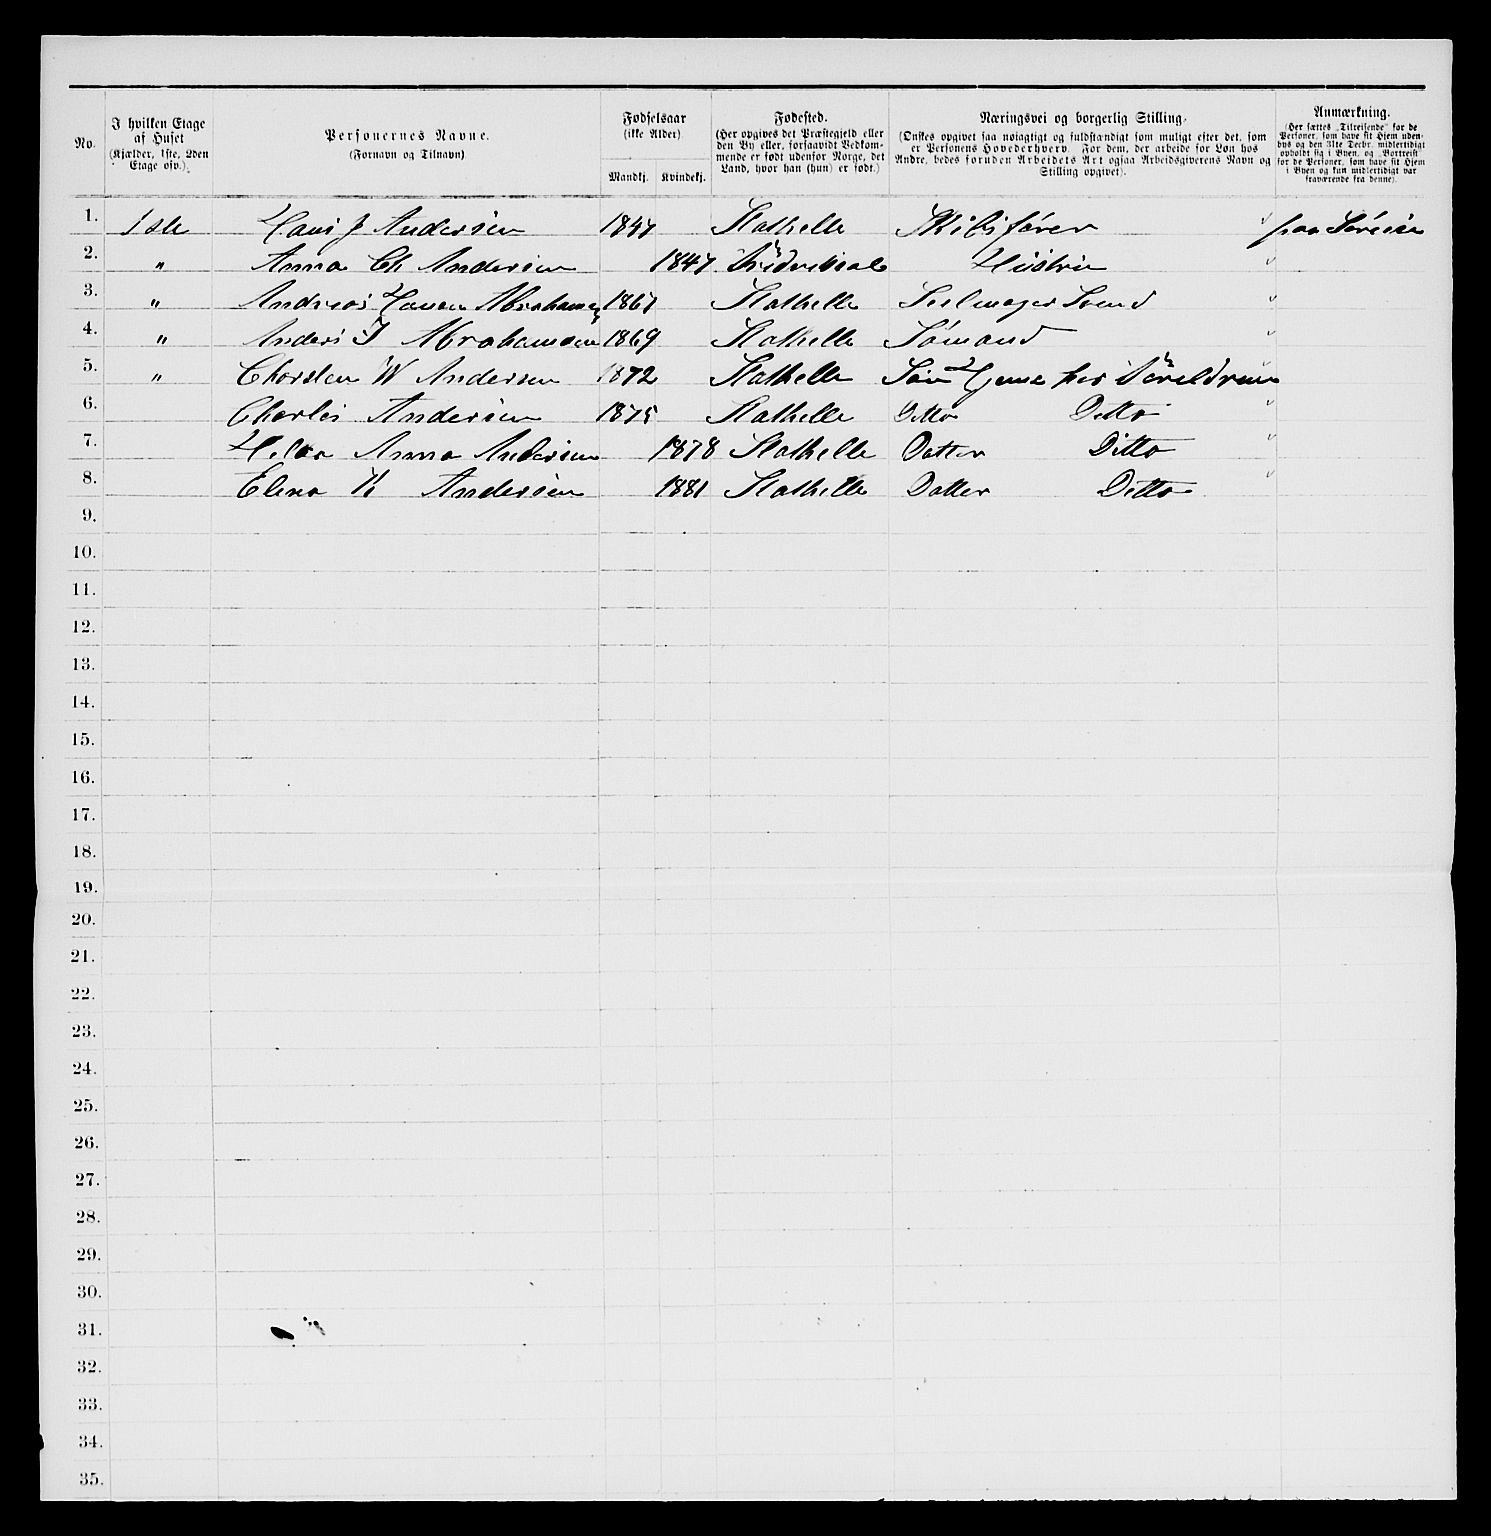 No.
I hvilken Etage af Huset (Kjælder, 1ste, 2den Etage osv.).
Personernes Navne. (Fornavn og Tilnavn)
Fødselsaar (ikke Alder)
Mandkj. Kvindekj.
Fødested. (Her opgives det Præstegjeld eller den By eller, forsaavidt Vedkommende er født udenfor Norge, det Land, hvor han (hun) er født.)
Næringsvei og borgerlig Stilling. (Ønskes opgivet saa nøiagtigt og fuldstændigt som muligt efter det, som er Personens Hovederhverv. For dem, der arbeide for Løn hos Andre, bedes foruden Arbeidets Art ogsaa Arbeidsgiverens Navn og Stilling opgivet).
Anmærkning. (Her sættes „Tilreisende" for de Personer, som have sit Hjem udenbys og den 31te Decbr. midlertidigt opholdt sig i Byen, og „Bortreist" for de Personer, som have sit Hjem i Byen og kun midlertidigt var fraværende fra denne).
1. 1ste Hans J Andersen 1847 Stathelle Skibsfører paa Søreise
2. " Anna Ch Andersen 1847 Hustru
3. " Andreas Hansen Abrahamsen 1867 Stathelle Seilmager Svend
4. " Anders I Abrahamsen 1869 Stathelle Sømand
5. " Thorsten W Andersen 1872 Stathelle Søn Hjeme hos Foreldrene
6. Charles Andersen 1875 Stathelle Ditto Ditto
7. Helga Anna Andersen 1878 Stathelle Datter Ditto
8. Elena K Andersen 1881 Stathelle Datter Ditto
9.
10.
11.
12.
13.
14.
15.
16.
17.
18.
19.
20.
21.
22.
23.
24.
25.
26.
27.
28.
29.
30.
31.
32.
33.
34.
35.